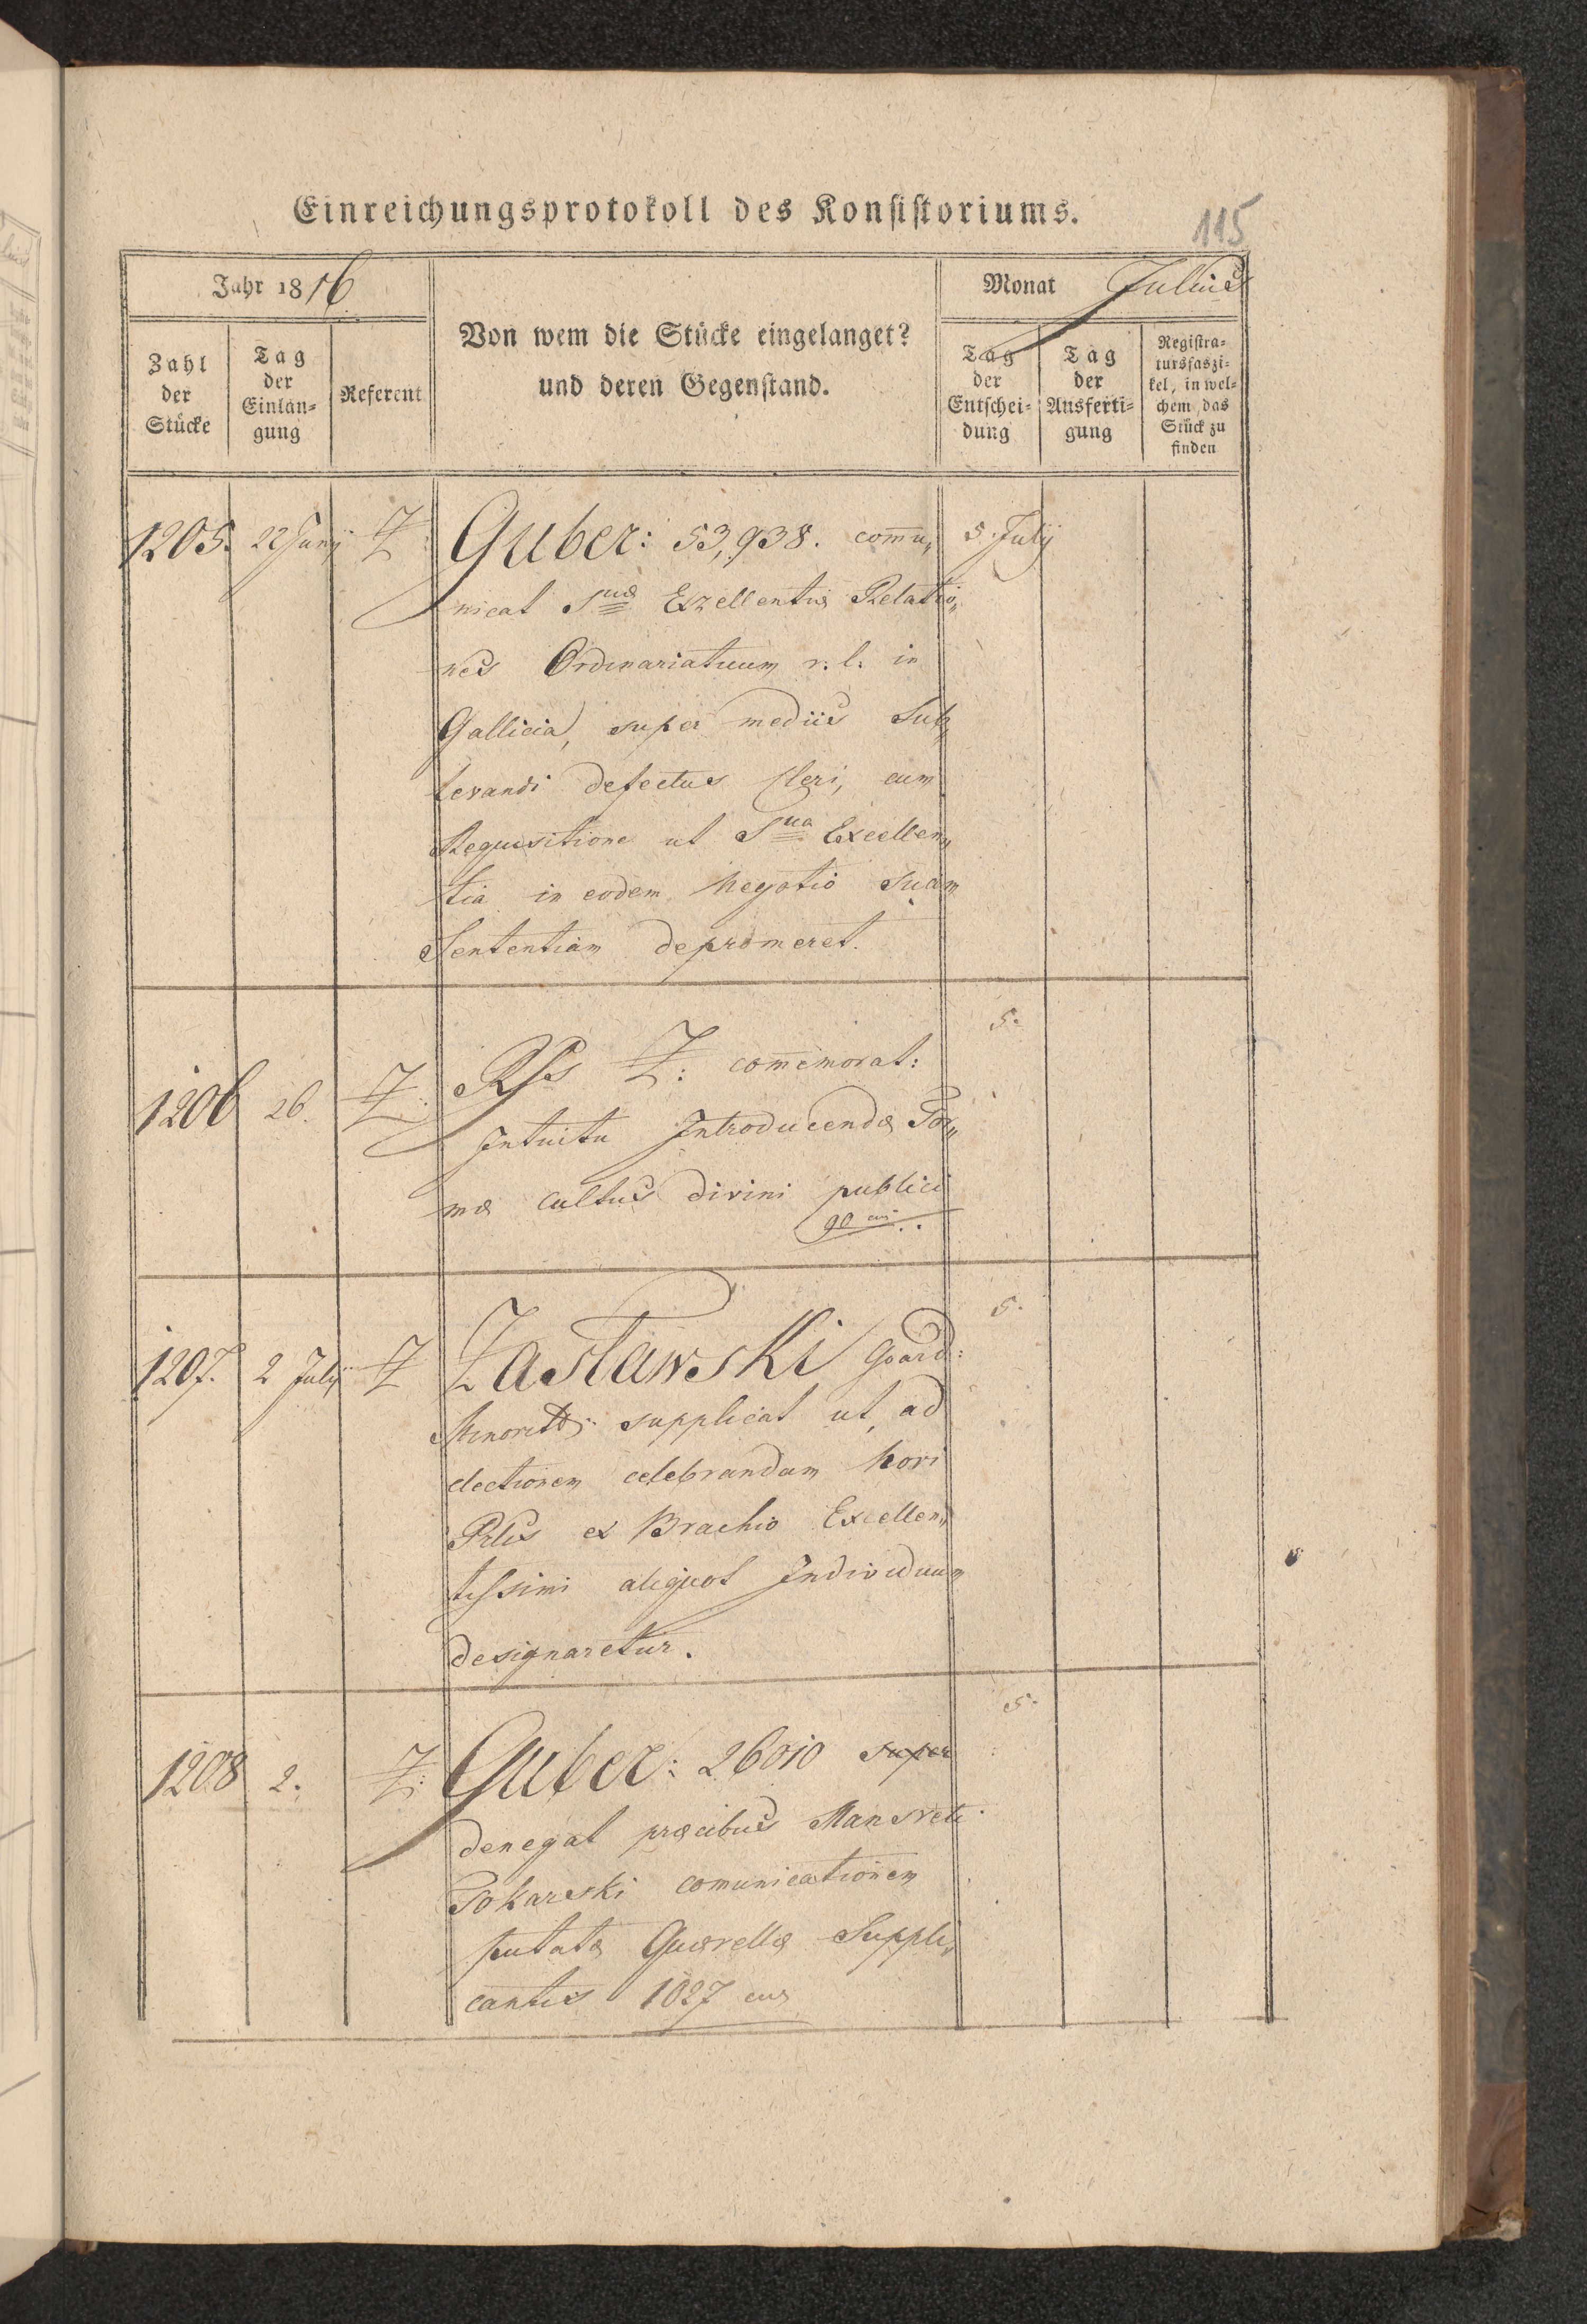 Einreichungsprotokoll des Konsistoriums.
115
Jahr 1816
Von wem die Stücke eingelanget?
und deren Gegenstand.
Monat Julius
Zahl der Stücke
Tag der Einlan=gung
Referent
Tag der Entschei=dung
Tag der Ausferti=gung
Registra=tursfaszi=kel, in wel=chem das Stück zu finden
1205. 22 Junij Z: Guber: 53,938. com̄u„ 5. Julij
nicat Suæ Exzellentiæ Relatio„
nes Ordinariatuum r. l. in
Gallicia, super mediis Sub„
levandi defectus Cleri, cum
Requisitione ut Sua Excellen„
tia in eodem negotio suam
Sententiam depromeret.
1206 26. Z: Rss Z: com̄emorat: 5.
Intuitu Introducendæ For„
mæ cultus divini publici
90 eni..
1207. 2 Julij Z Zasławski Gvard: 5.
Minoritt: supplicat ut, ad
electionem celebrandam novi
Prlis ex Brachio Excellen„
tissimi aliquot Individuum
designaretur.
1208 2. Z: Guber: 26010 super 5.
denegat præcibus Mansveti
Tokarski comunicationem
putatæ Quærellæ Suppli„
cantis 1027